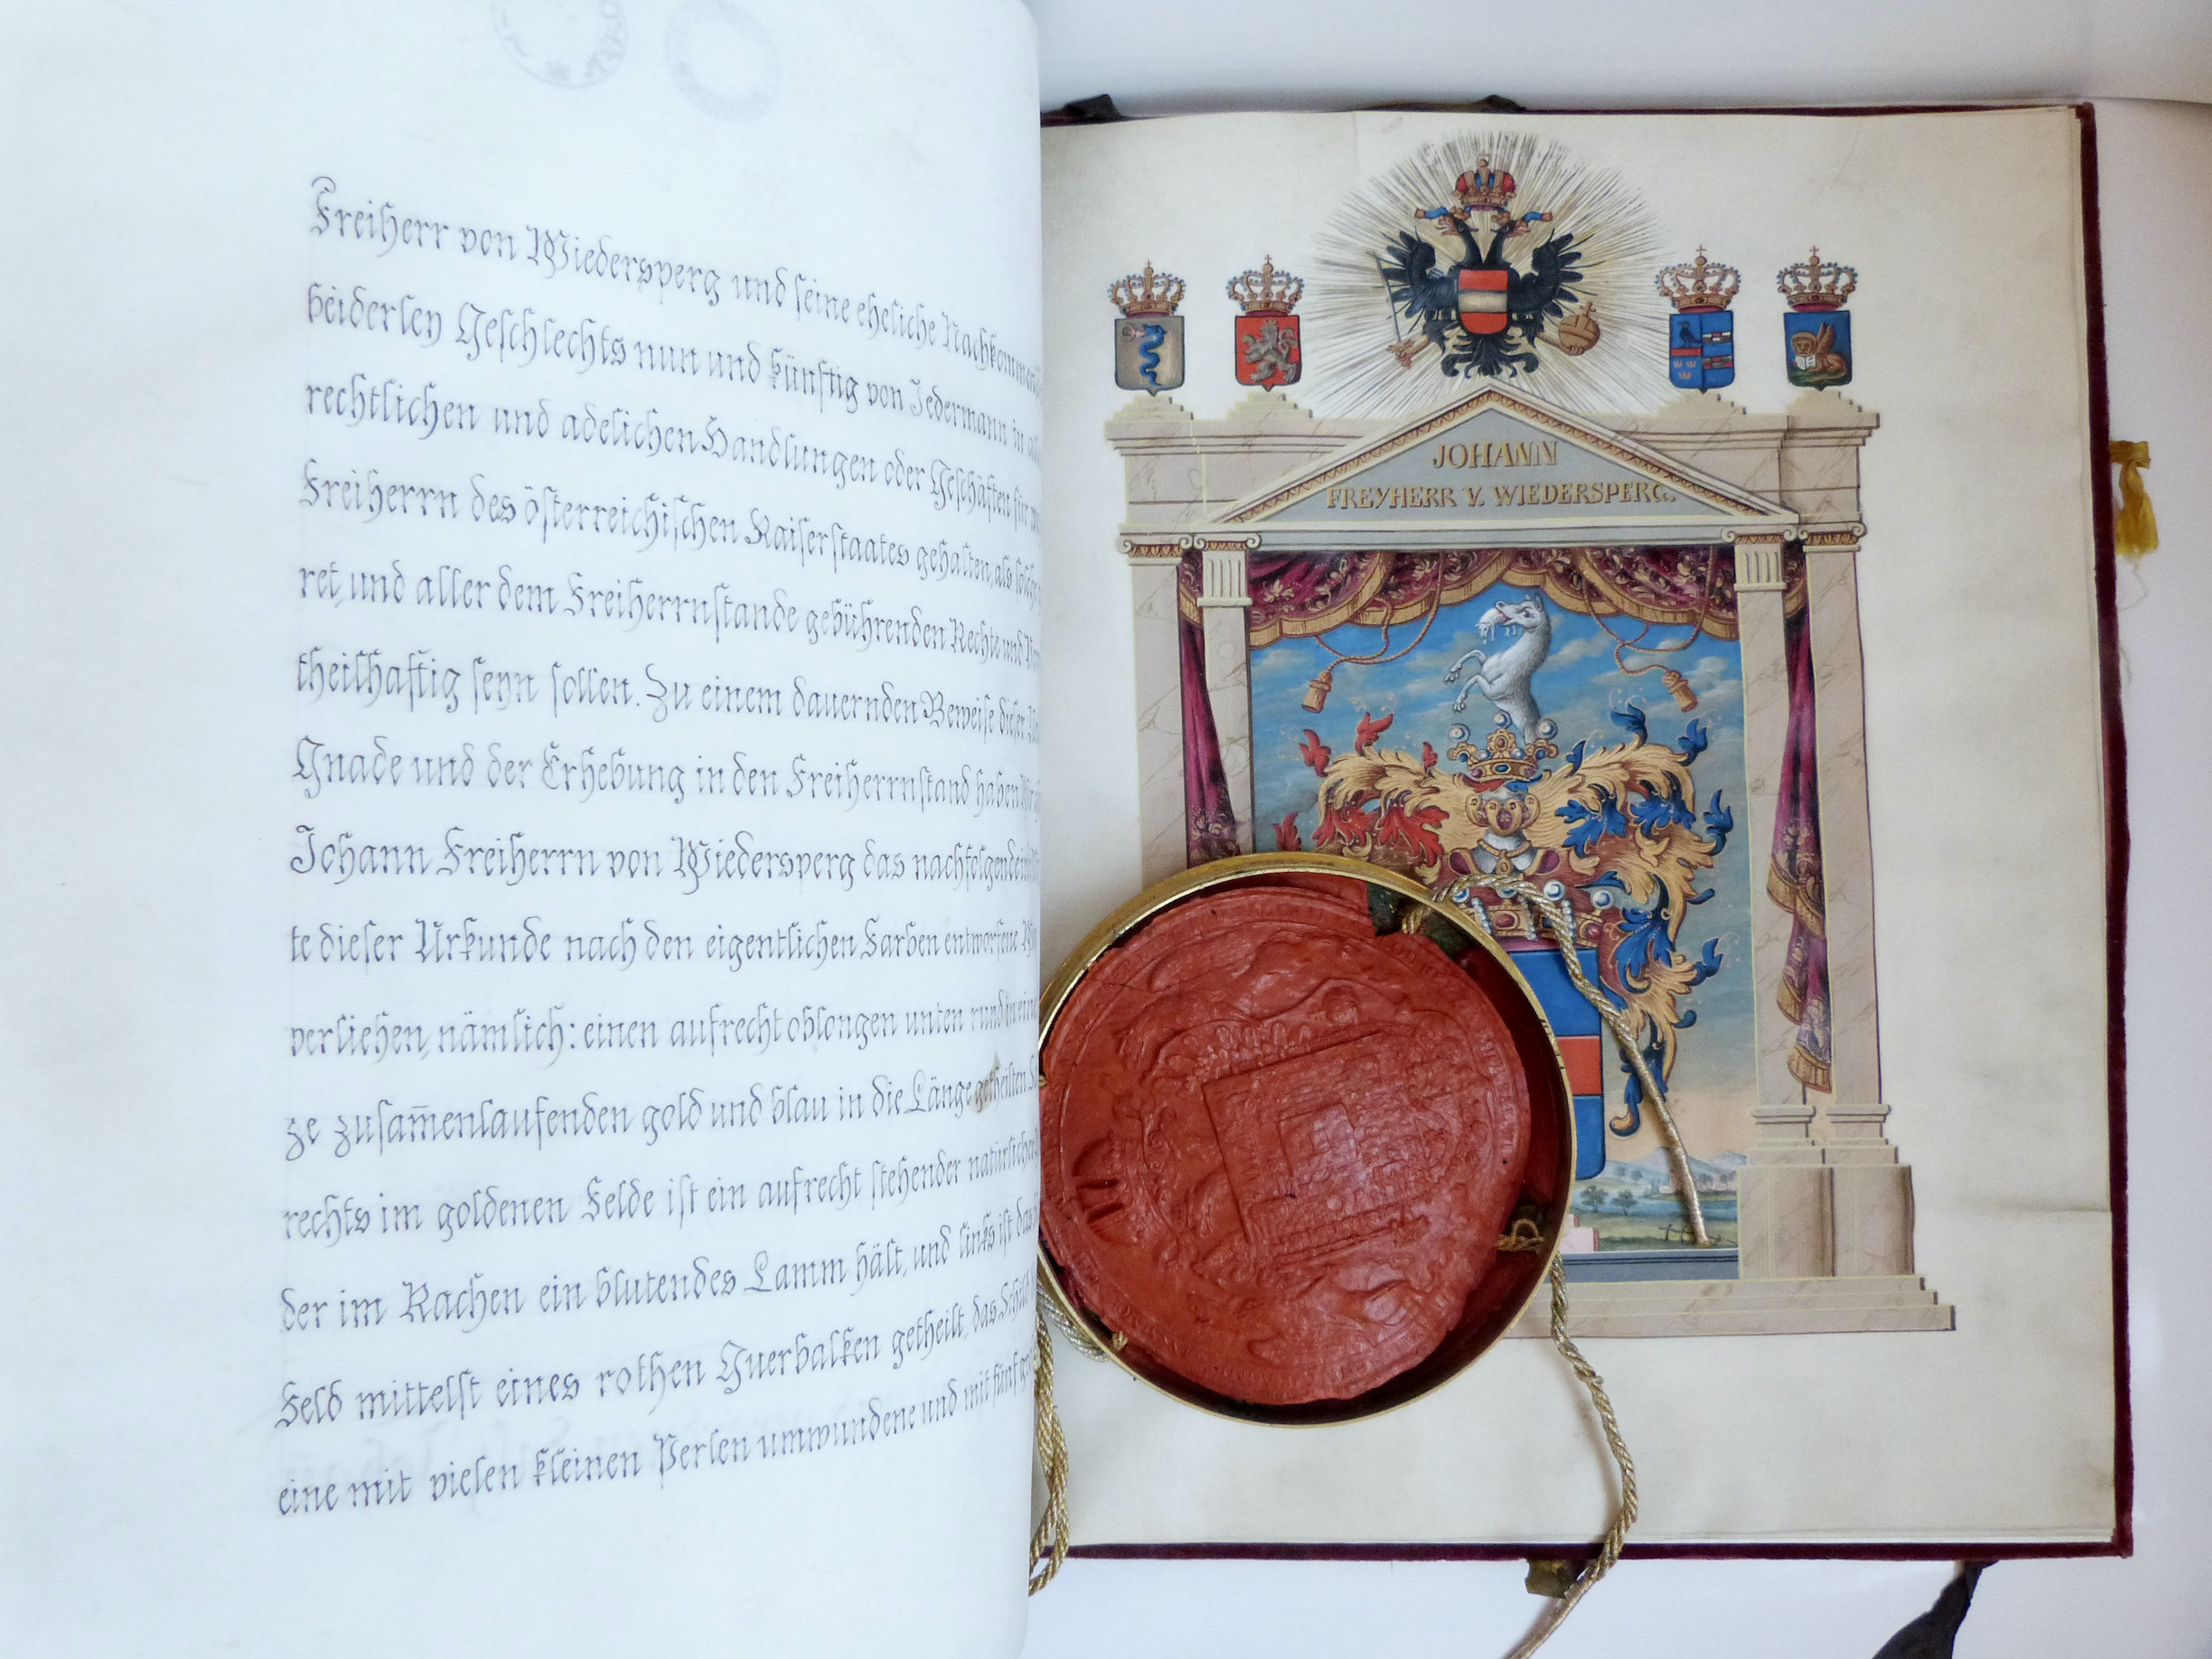 Freiherr von Wiedersperg und seine eheliche Nachkommen
beiderley Geschlechts nun und künftig von Jedermann in
rechtlichen und adelichen Handlungen oder Geschäften für
Freiherrn des österreichischen Kaiserstaates gehalten, als
ret, und aller dem Freiherrnstande gebührenden Rechte und
theilhaftig seyn sollen. Zu einem dauernden Beweise dieser
Gnade und der Erhebung in den Freiherrnstand haben Wir
Johann Freiherrn von Wiedersperg das nachfolgende
te dieser Urkunde nach den eigentlichen Farben entworfene
verliehen, nämlich: einen aufrecht oblongen unten rund in
ze zusam̄enlaufenden gold und blau in die Länge getheilten
rechts im goldenen Felde ist ein aufrecht stehender
der im Rachen ein blutendes Lamm hält, und links ist das
Feld mittelst eines rothen Querbalken getheilt, das
eine mit vielen kleinen Perlen umwundene und mit fünf
JOHANN
FREYHERR V. WIEDERSPERG.